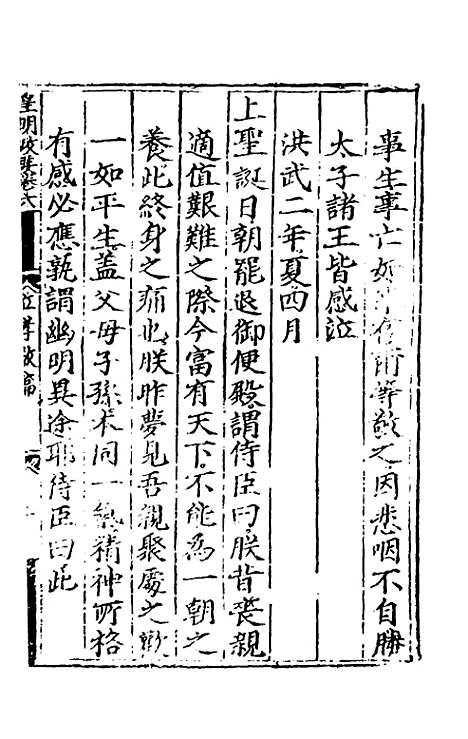 事生事亡如事存爾等敬之因悲咽不自勝
太子諸王皆感泣
洪武二年夏四月
上聖誕日朝罷退御便殿謂侍臣曰朕昔喪親
適值艱難之際今富有天下不能為一朝之
養此終身之痛也朕昨夢見吾親聚處之歡
一如平生蓋父母子孫本同一氣精神所格
有感必應孰謂幽明異途耶侍臣曰此
皇明政要卷六
孝敬篇